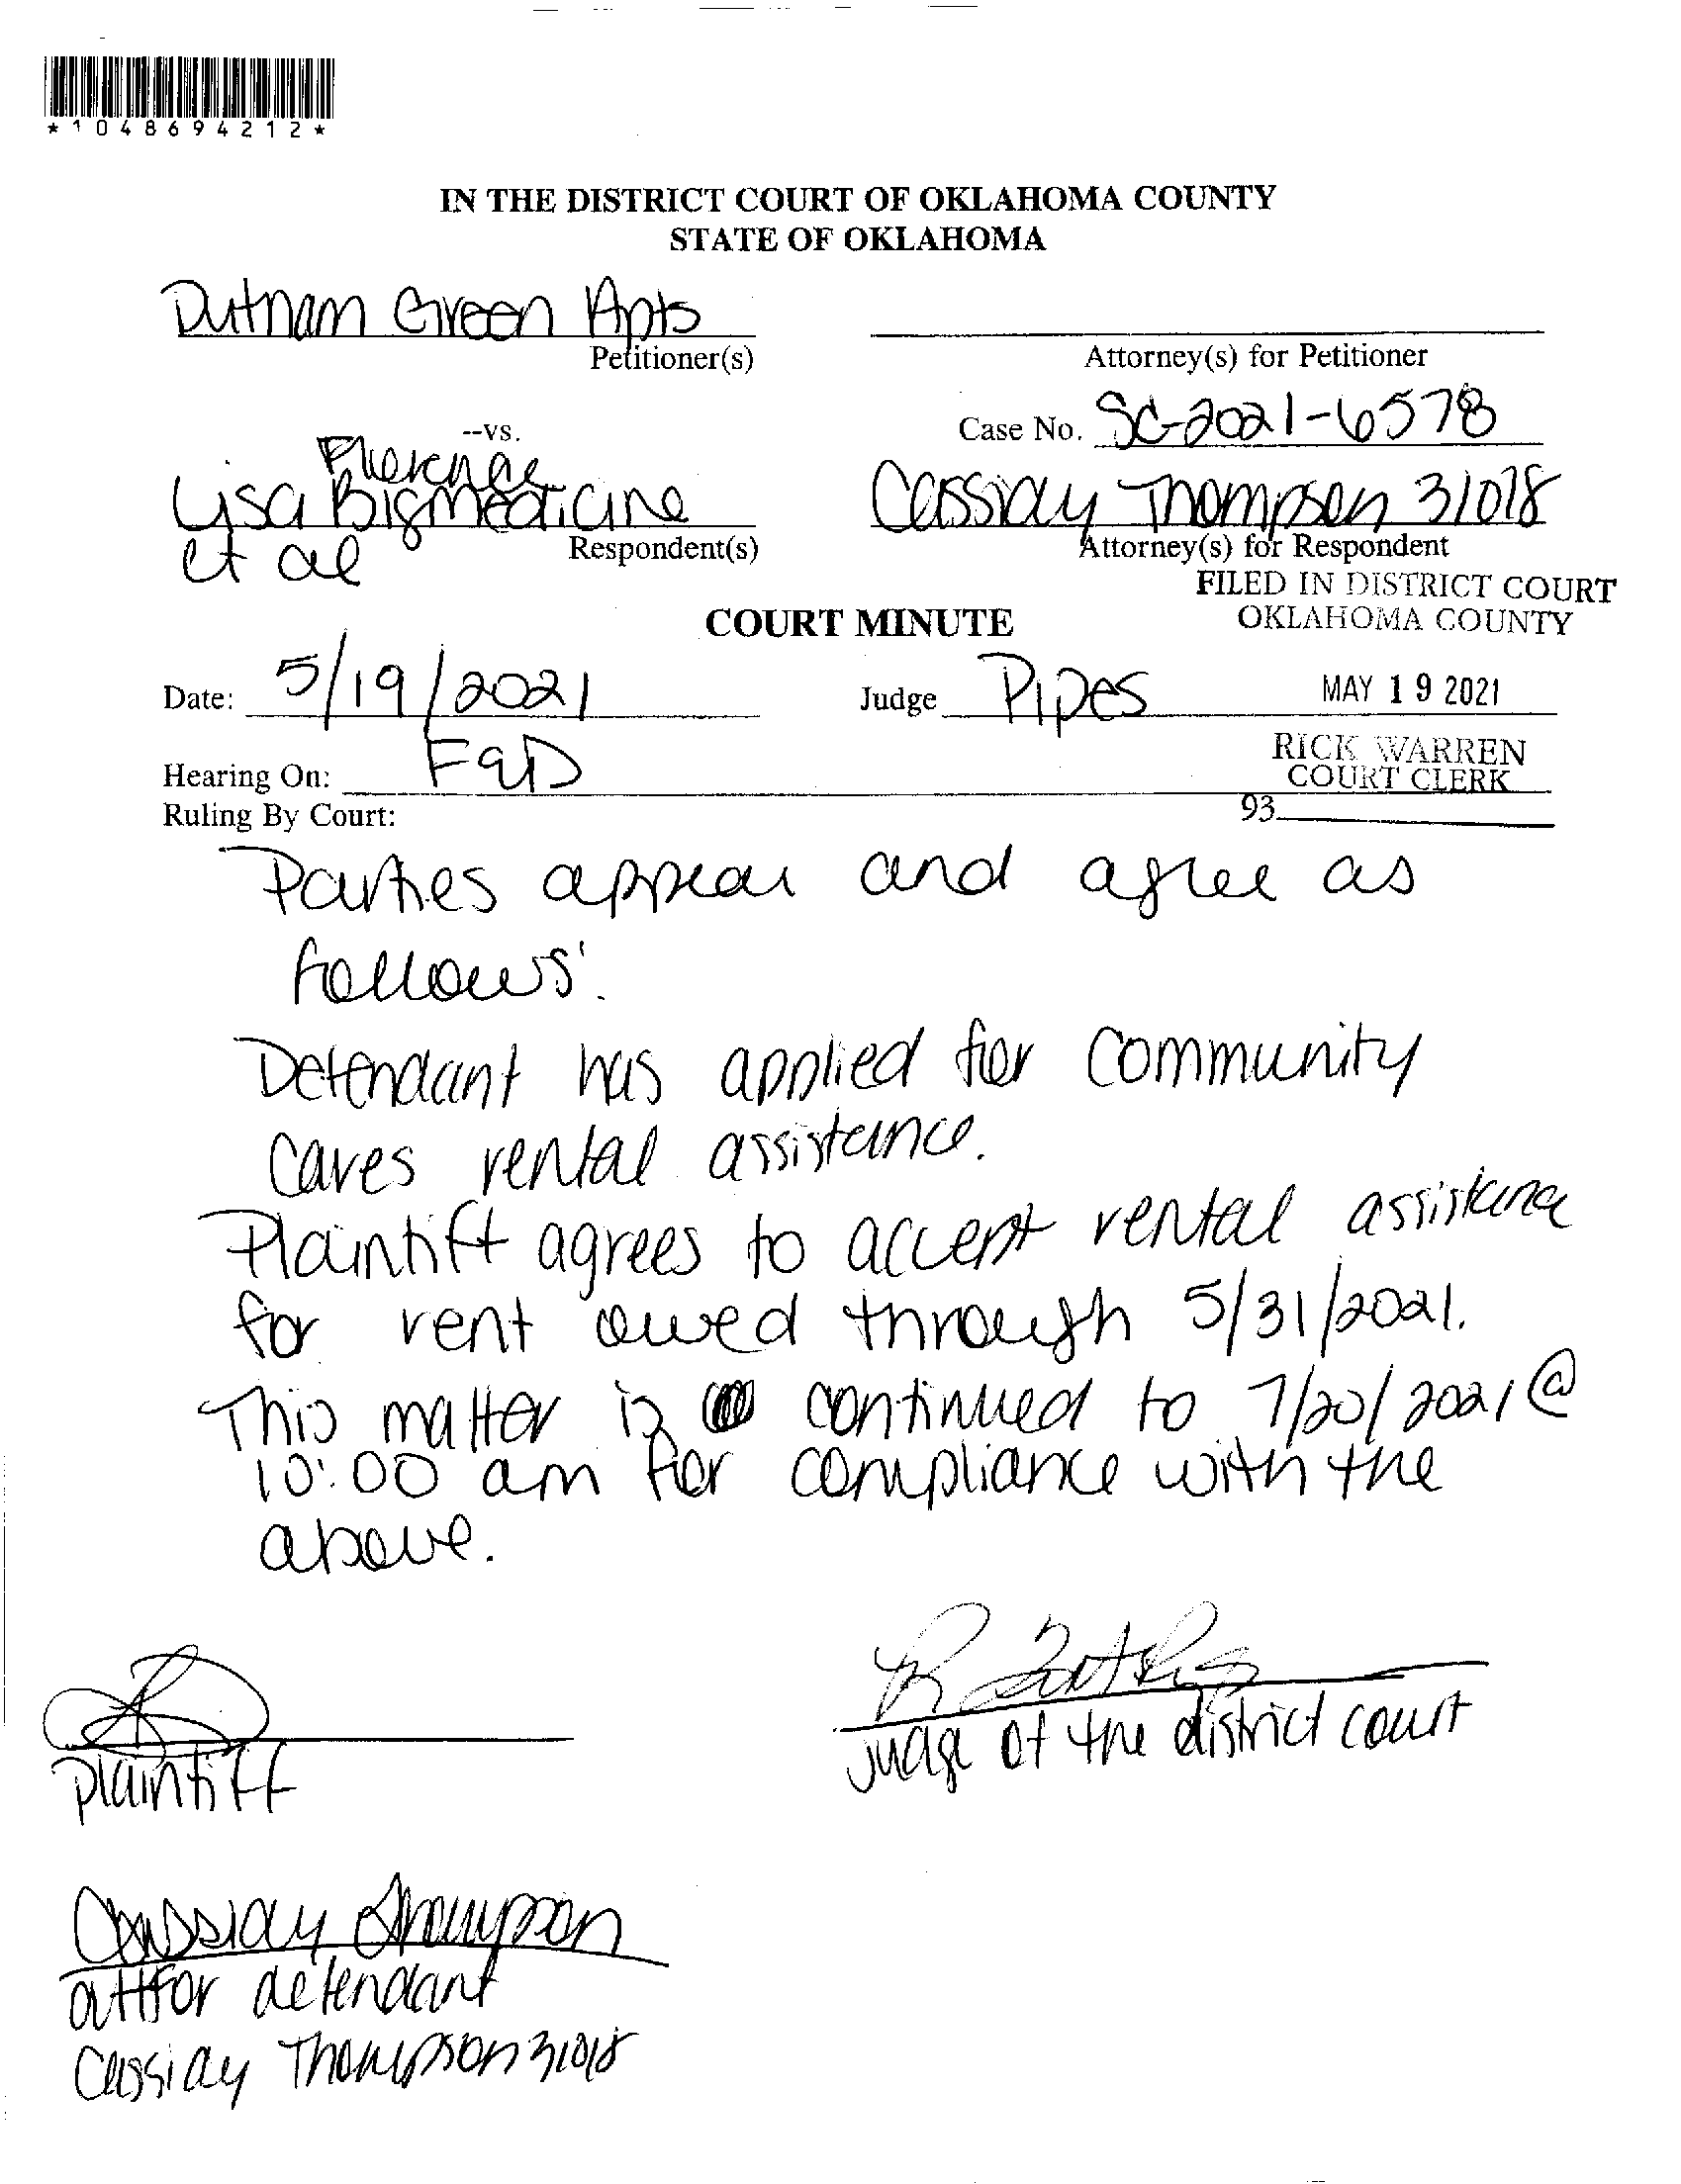 *1048694212*
IN THE DISTRICT COURT OF OKLAHOMA COUNTY
STATE OF OKLAHOMA
Putnam Green Apts
Petitioner(s)
Attorney(s) for Petitioner
Case No. SC-2021-6578
--vs.
Florence
Lisa Bigmedicine
et al
Respondent(s)
Cassidy Thompson 31018
Attorney(s) for Respondent
FILED IN DISTRICT COURT
OKLAHOMA COUNTY
COURT MINUTE
Date: 5/19/2021
Judge Pipes
MAY 19 2021
RICK WARREN
COURT CLERK
93
Hearing On: F&D
Ruling By Court:
Parties appear and agree as
follows:
Defendant has applied for Community
Cares rental assistance.
Plaintiff agrees to accept rental assistance
for rent owed through 5/31/2021.
This matter is continued to 7/20/2021 @
10:00 am for compliance with the
above.
Plaintiff
judge of the district court
Cassidy Thompson
att for defendant
Cassidy Thompson 31018